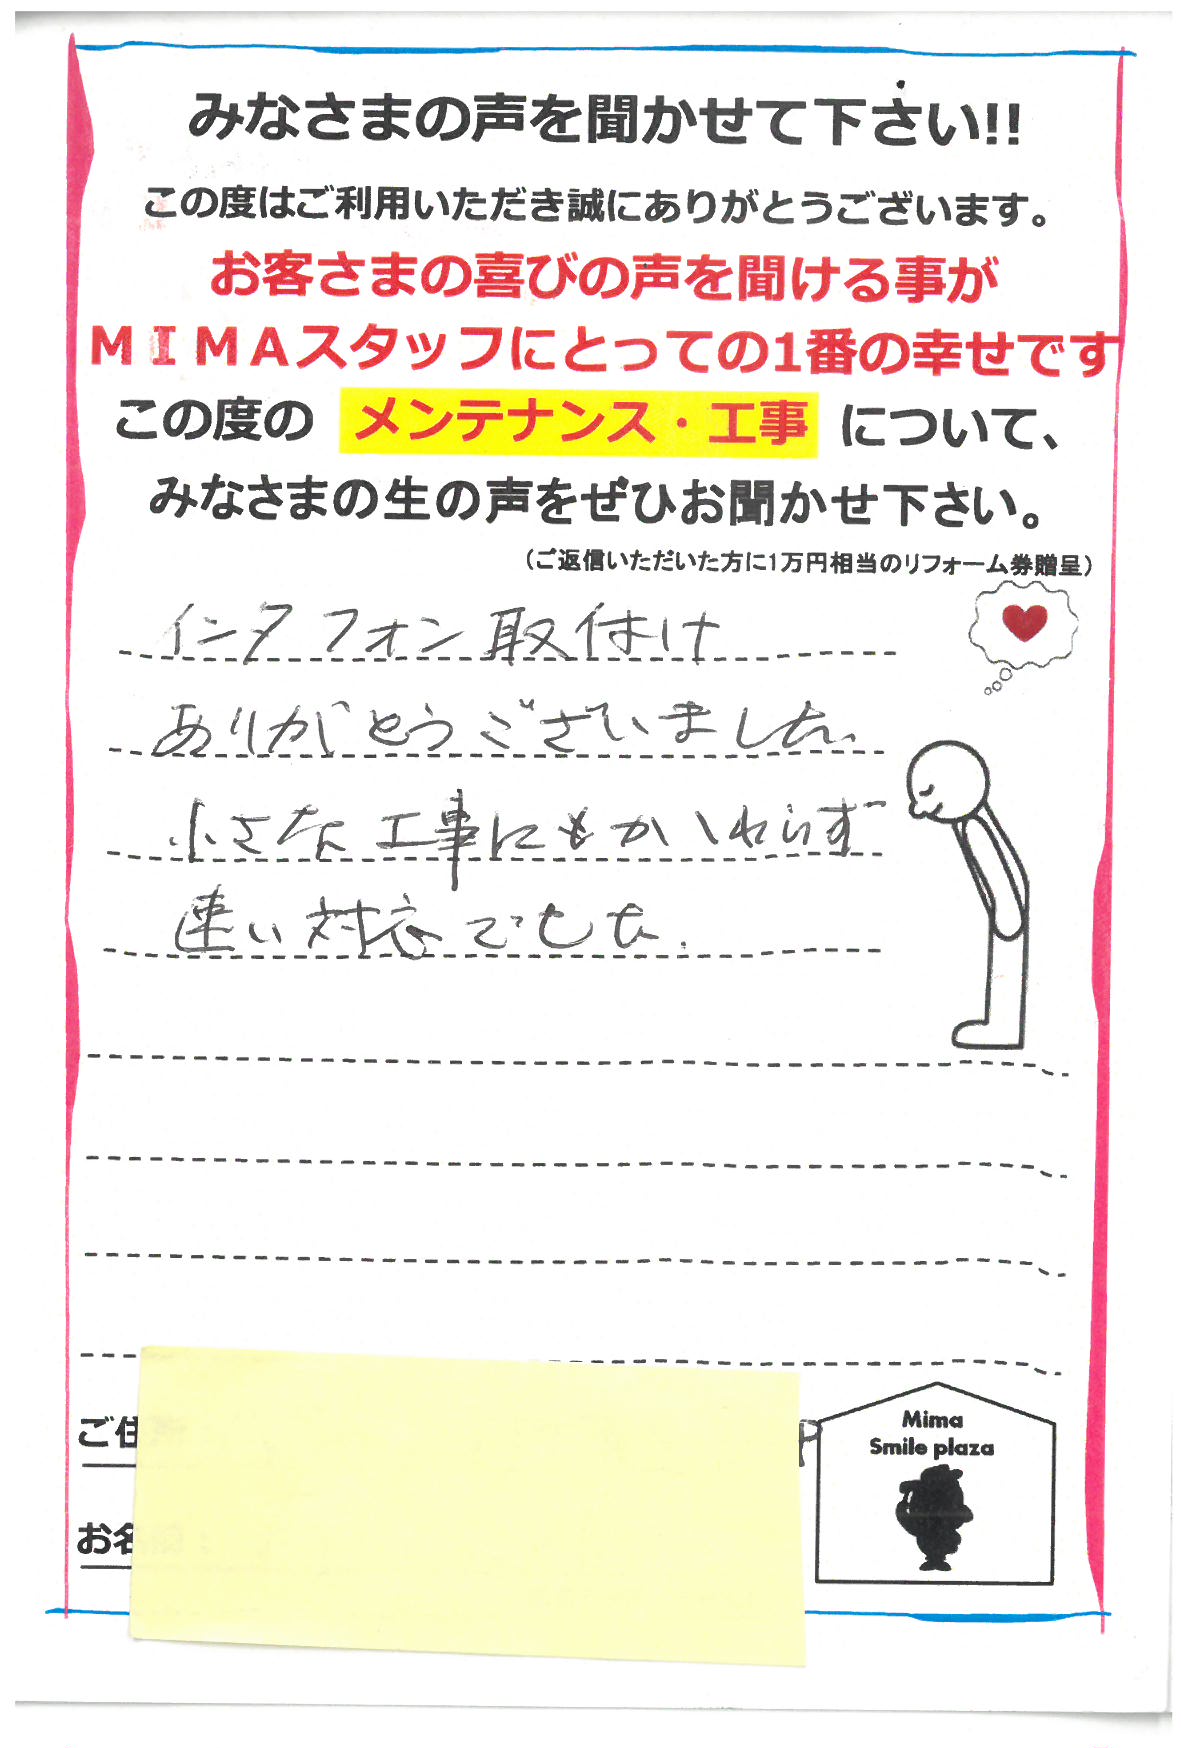 みなさまの声を聞かせて下さい!!
この度はご利用いただき誠にありがとうございます。
お客さまの喜びの声を聞ける事が
ＭＩＭＡスタッフにとっての1番の幸せです
この度の メンテナンス・工事 について、
みなさまの生の声をぜひお聞かせ下さい。
（ご返信いただいた方に1万円相当のリフォーム券贈呈）
インタフォン取付け
ありがとうございました。
小さな工事にもかゝわらず
速い対応でした.
ご住
P
お名
Mima
Smile plaza